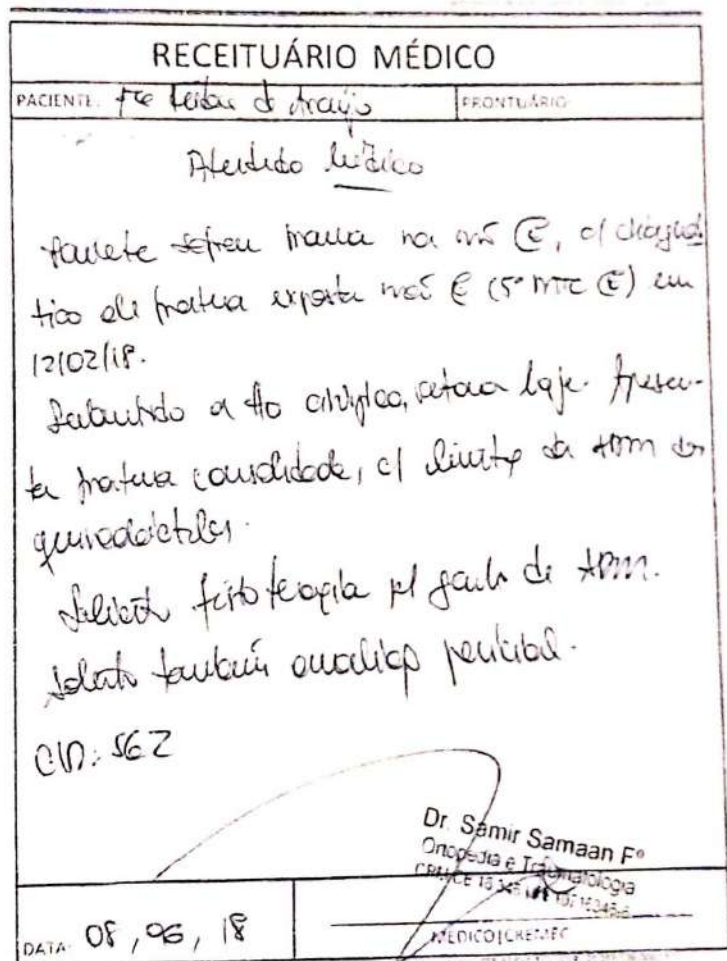 RECEITUÁRIO MÉDICO
PACIENTE: Fco de Araújo PRONTUÁRIO:
Atestado Médico
Paciente sofreu trauma na mão (E), c/ diagnós
tico de fratura exposta mão E (5º MTC (E)) em
12/02/18.
Submetido a tto cirúrgico, retorna hoje. Apresen-
ta fratura consolidada, c/ limite da ADM dos
quirodáctilos.
Solicito fisioterapia p/ ganho de ADM.
Solicito também avaliação pericial.
CID: S62
Dr. Samir Samaan Fº
Ortopedia e Traumatologia
DATA: 08, 06, 18 MÉDICO|CREMEC